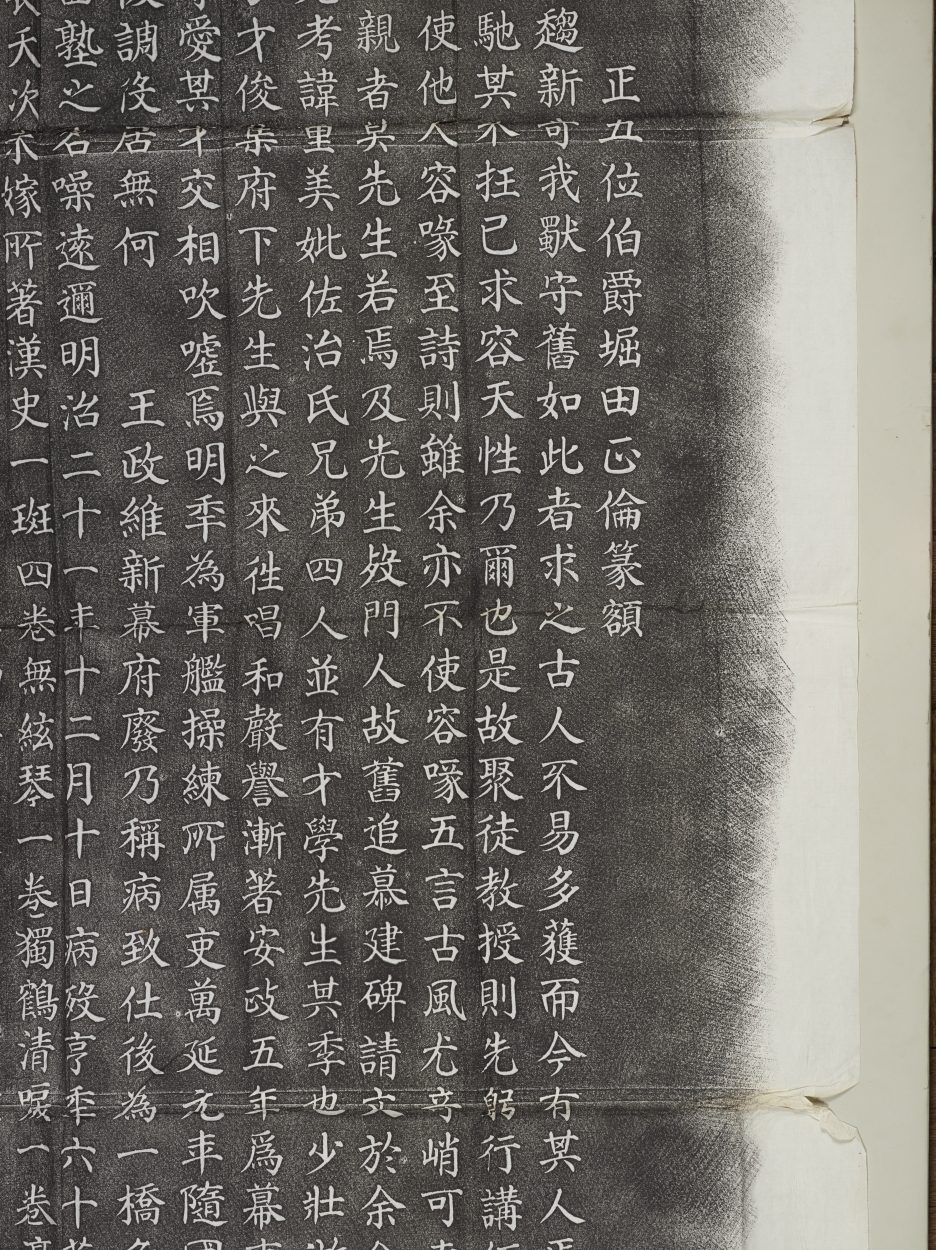 正五位伯爵堀田正倫篆額
趨新可我獸守舊如此者求之古人不易多獲而今有其人焉
馳其不抂己求容天性乃爾也是故聚徒教授則先躬行講
使他人容喙至詩則雖余亦不使容喙五言古風尤奇峭可
親者矣先生若焉及先生歿門人故舊追慕建碑請文於余余
考諱里美妣佐治氏兄弟四人並有才學先生其季也少壯
才俊集府下先生與之來往唱和聲譽漸著安政五年爲幕
愛其才交相吹噓焉明年為軍艦操練所属吏萬延元年隨國
調役居無何 王政維新幕府廢乃稱病致仕後為一橋
塾之名噪遠邇明治二十一年十二月十日病歿享年六十
天次未嫁所著漢史一斑四卷無絃琴一卷獨鶴清唳一卷